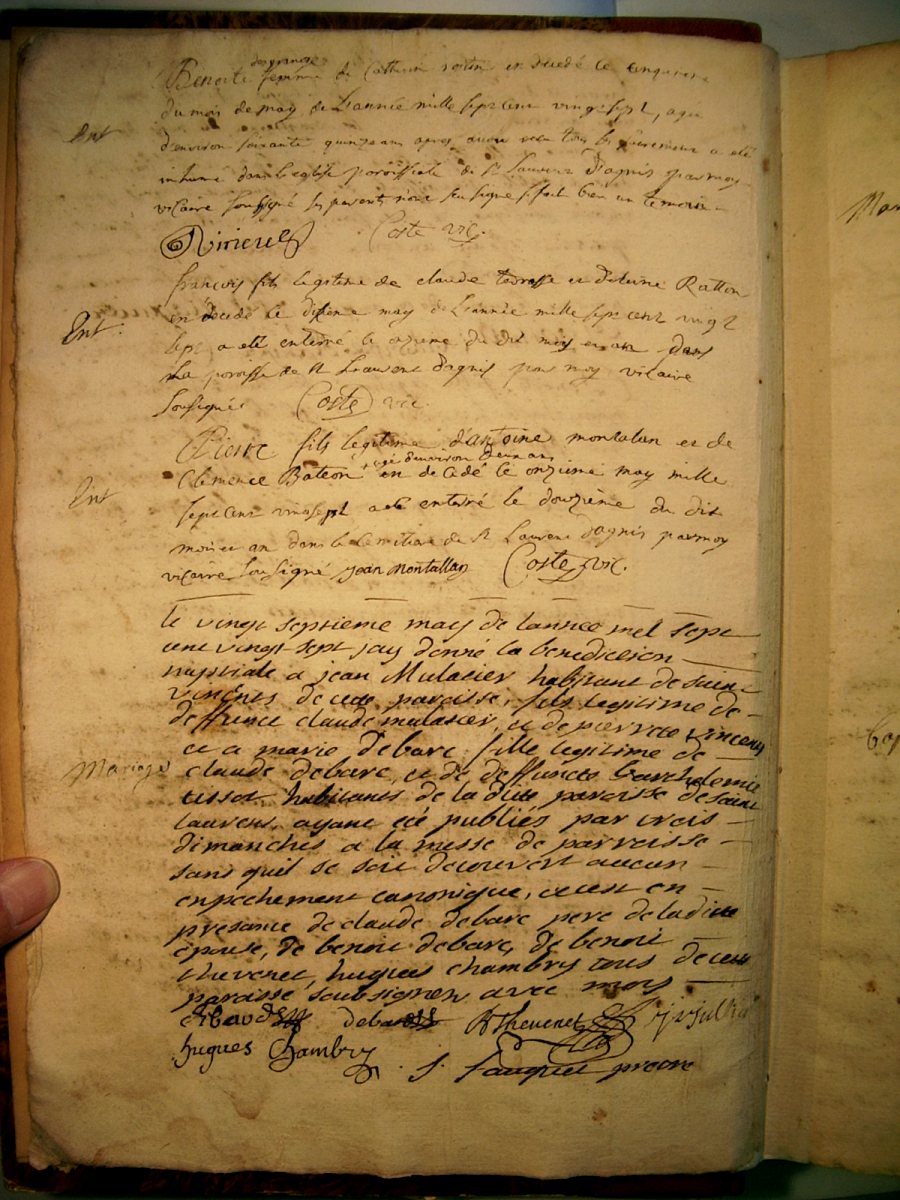 desgranges
Benoite femme de Catherin en decedé le cinquieme
du mois de may de L'année mille sept cent vingt sept, agée
Ent
d'environ soixante quinze ans apres avoir receu tous les sacremens a eté
inhumé dans l'eglise paroissiale de st Laurens d'agnis par moy
vicaire soussigné les parents n'ont seu signe
Rivieres Coste vic.
françois fils legitime de claude terrasse et d'etiene Ratton
Ent.
en decedé le dixieme may de L'année mille sept cent vingt
sept a eté enterré le onzieme du dit mois et an dans
La paroisse de st Laurent d'agnis par moy vicaire
soussigné Coste vic.
Pierre fils legitime d'antoine montalan et de
+ agé d'environ deux ans
Clemence Bateon + en decedé le onzieme may mille
Ent
sept cent vingt sept a eté enterré le douzieme du dit
mois et an dans le cemitiere de st Laurens d'agnis par moy
vicaire soussigné jean montallan Coste vic.
le vingt septieme may de lannee mil sept
cent vingt sept jay donné la benediction
nuptiale a jean Mulatier habitant de saint
vincent de cette paroisse, fils legitime de
deffunct claude mulatier, et de pierrete vincent
et a marie debarc fille legitime de
Mariage
claude debarc, et de deffuncte barthelemie
tissot habitants de la dite paroisse de saint
laurens, ayant eté publiés par trois
dimanches a la messe de parroisse
sans quil se soit decouvert aucun
enpechement canonique, et cest en
presance de claude debarc pere de laditte
epouse, de benoit debarc, de benoit
thevenet, hugues chambry tous de cette
paroisse soubsignes avec moy
debarc BThevenet
hugues Chambry
J. fauquet pretre
Mar